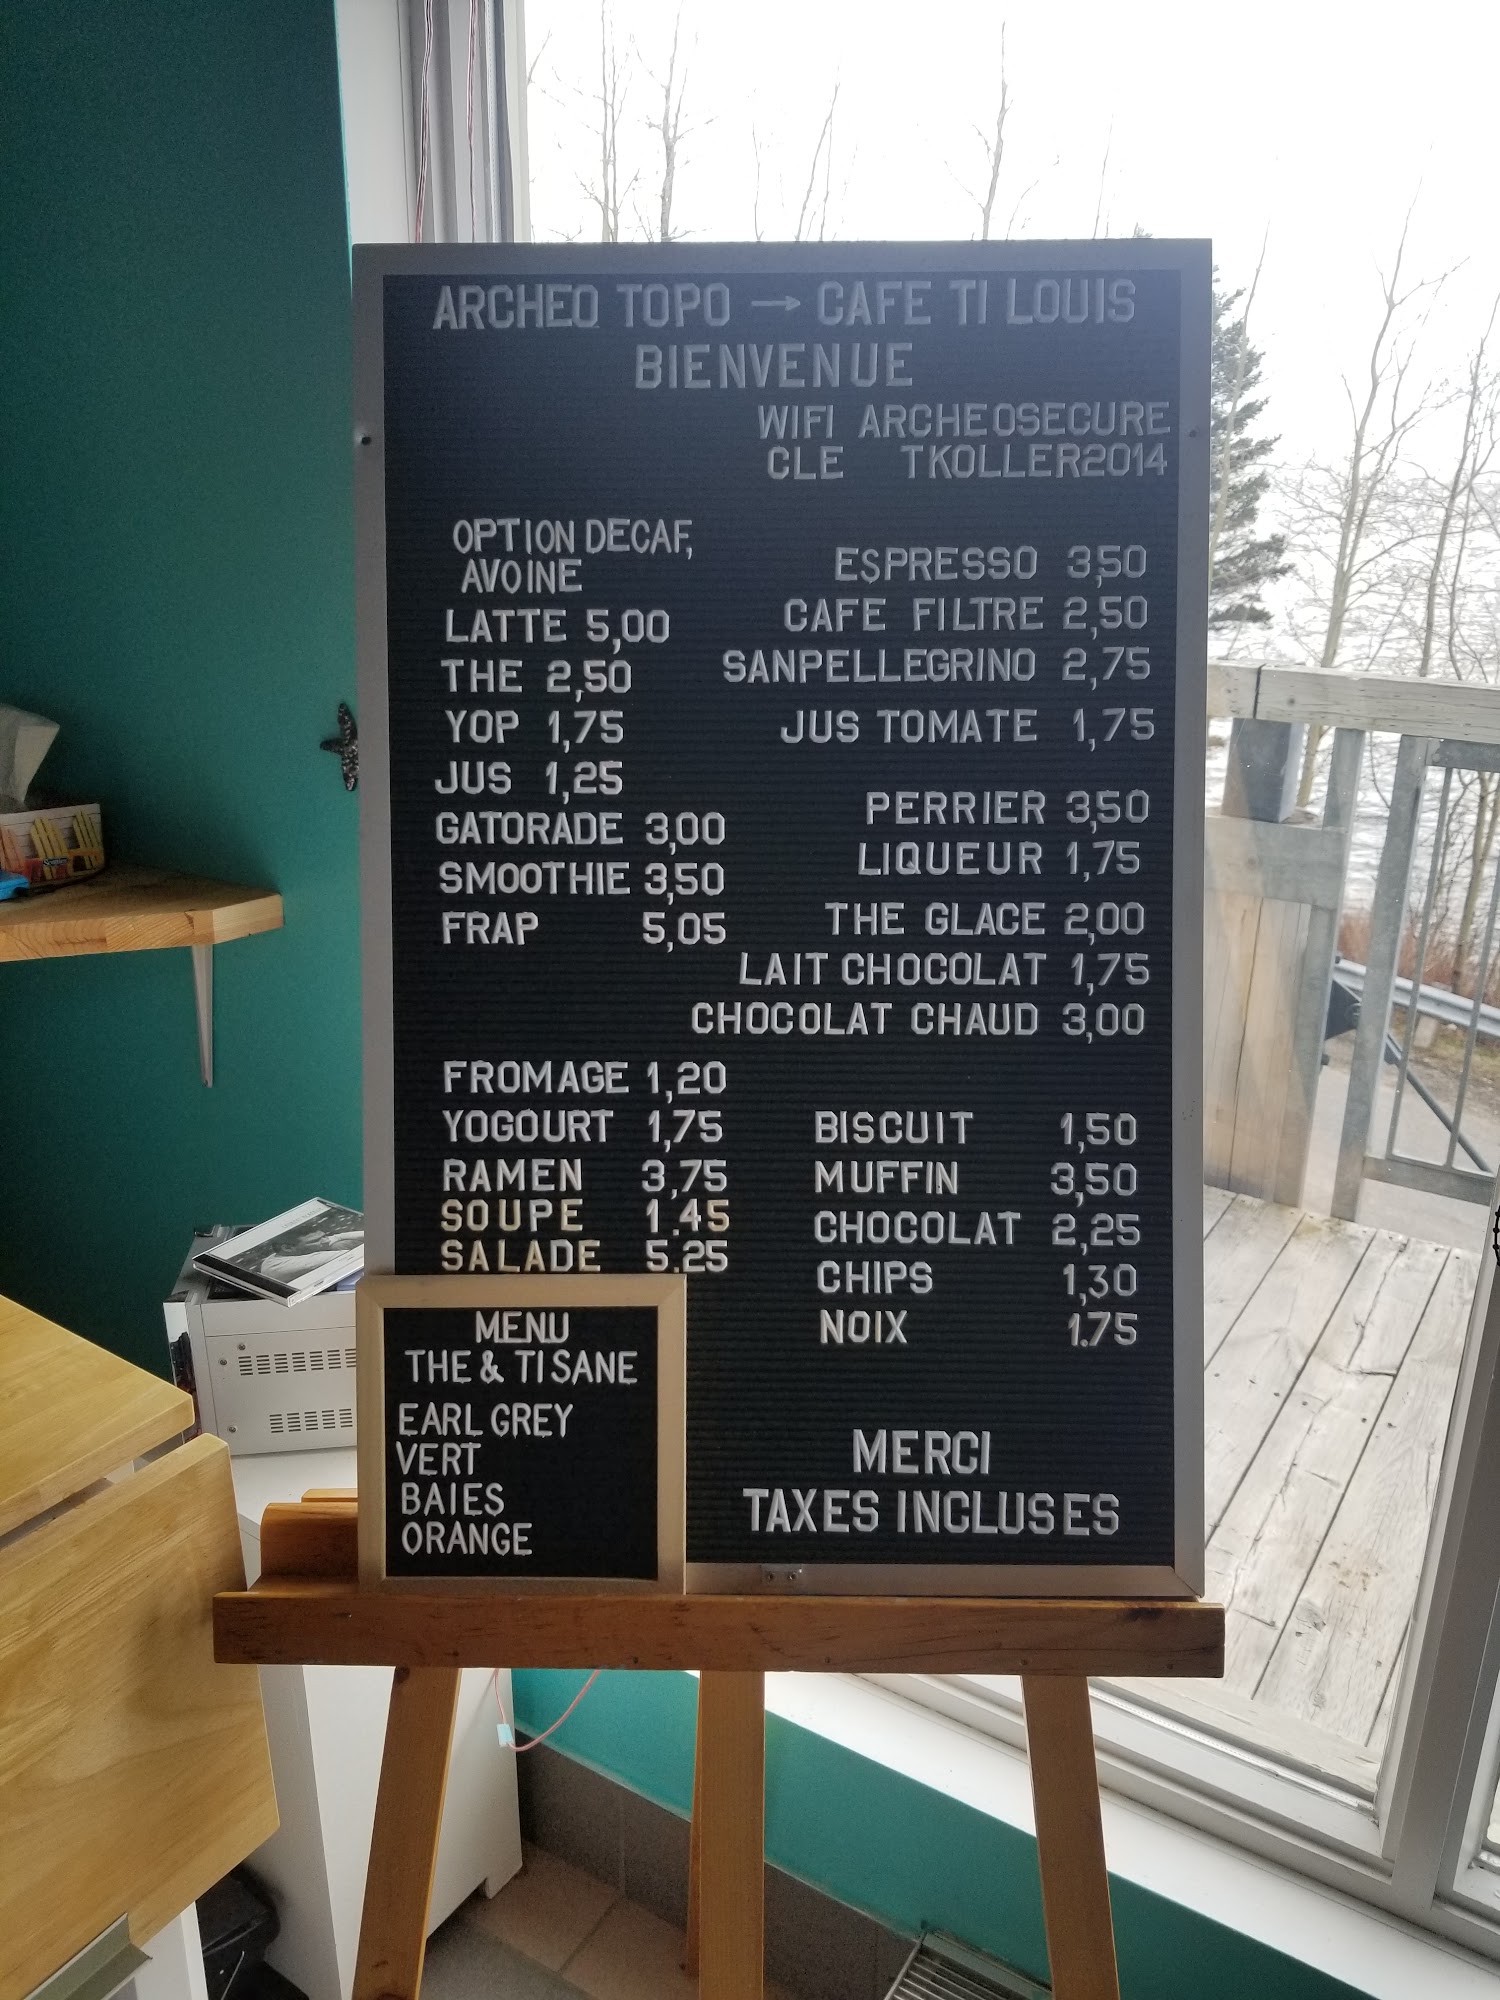 ARCHEO TOPO → CAFE TI LOUIS
BIENVENUE
WIFI ARCHEOSECURE
CLE TKOLLER2014
OPTION DECAF,
AVOINE
LATTE 5,00
THE 2,50
YOP 1,75
JUS 1,25
GATORADE 3,00
SMOOTHIE 3,50
FRAP 5,05
ESPRESSO 3,50
CAFE FILTRE 2,50
SANPELLEGRINO 2,75
JUS TOMATE 1,75
PERRIER 3,50
LIQUEUR 1,75
THE GLACE 2,00
LAIT CHOCOLAT 1,75
CHOCOLAT CHAUD 3,00
FROMAGE 1,20
YOGOURT 1,75
RAMEN 3,75
SOUPE 1.45
SALADE 5.25
BISCUIT 1,50
MUFFIN 3,50
CHOCOLAT 2,25
CHIPS 1,30
NOIX 1.75
MENU
THE & TISANE
EARL GREY
VERT
BAIES
ORANGE
MERCI
TAXES INCLUSES